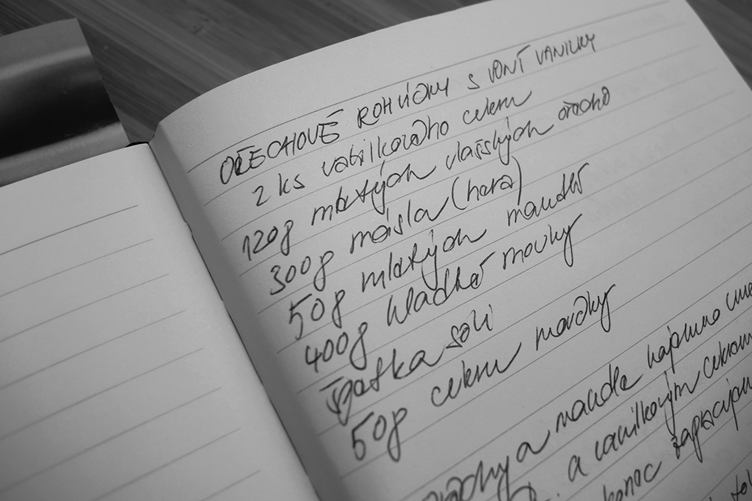 OŘECHOVÉ ROHLÍČKY S VONÍ VANILKY
2 ks vanilkového cukru
120g mletých vlašských ořechů
300g másla (hera)
50g mletých mandlí
400g hladké mouky
špetka soli
50g cukru moučky
ořechy a mandle najemno
a vanilkovým cukrem
konec zapracujeme